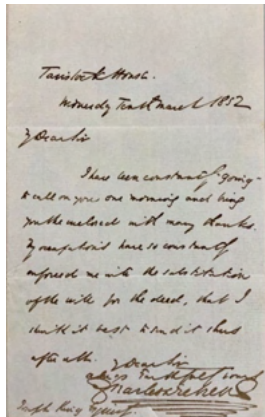 Tavistock House.
Wednesday Tenth March 1852
My Dear Sir
I have been constantly going
to call on you one morning and bring
you the enclosed with many thanks.
My occupations have so constantly
me with the substitution
of the will for the deed, that I
think it best to send it thus
after all.
My Dear Sir
always faithfully yours
Charles Dickens
Joseph King Esquire.